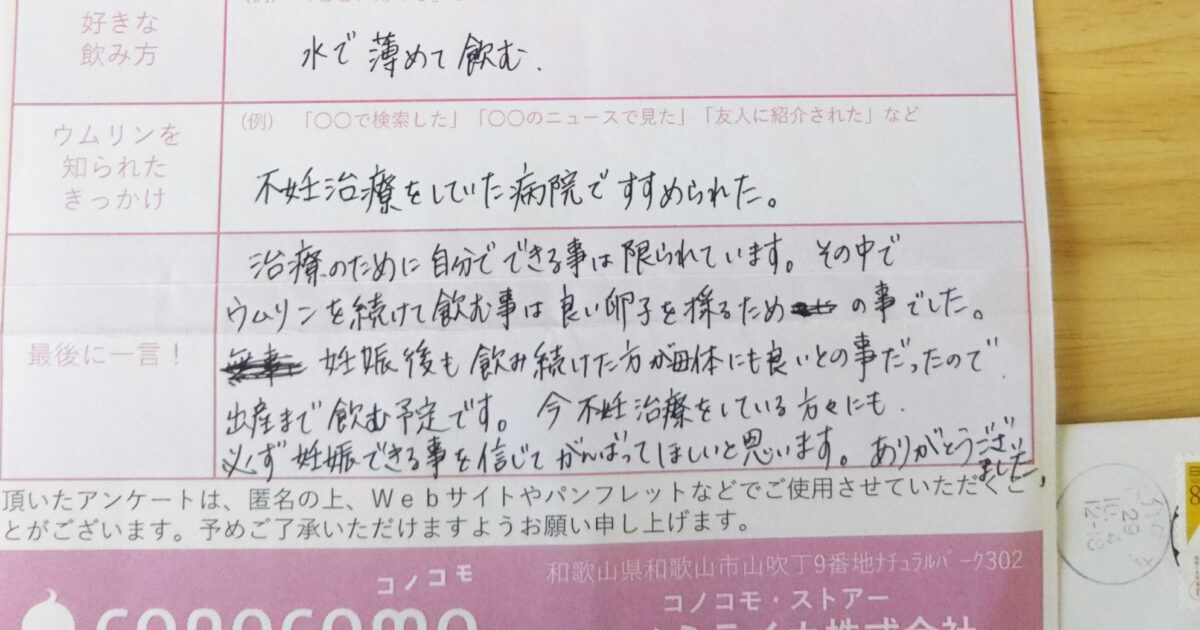 好きな
飲み方
水で薄めて飲む.
ウムリンを
知られた
きっかけ
(例) 「〇〇で検索した」「〇〇のニュースで見た」「友人に紹介された」など
不妊治療をしていた病院ですすめられた。
最後に一言！
治療のために自分でできる事は限られています。その中で
ウムリンを続けて飲む事は良い卵子を採るため の事でした。
妊娠後も飲み続けた方が母体にも良いとの事だったので
出産まで飲む予定です。今不妊治療をしている方々にも
必ず妊娠できる事を信じてがんばってほしいと思います。ありがとうござい
ました。
頂いたアンケートは、匿名の上、Ｗｅｂサイトやパンフレットなどでご使用させていただくこ
とがございます。予めご了承いただけますようお願い申し上げます。
コノコモ
conocomo
和歌山県和歌山市山吹丁9番地ﾅﾁｭﾗﾙﾊﾟｰｸ302
コノコモ・ストアー
29
12-18